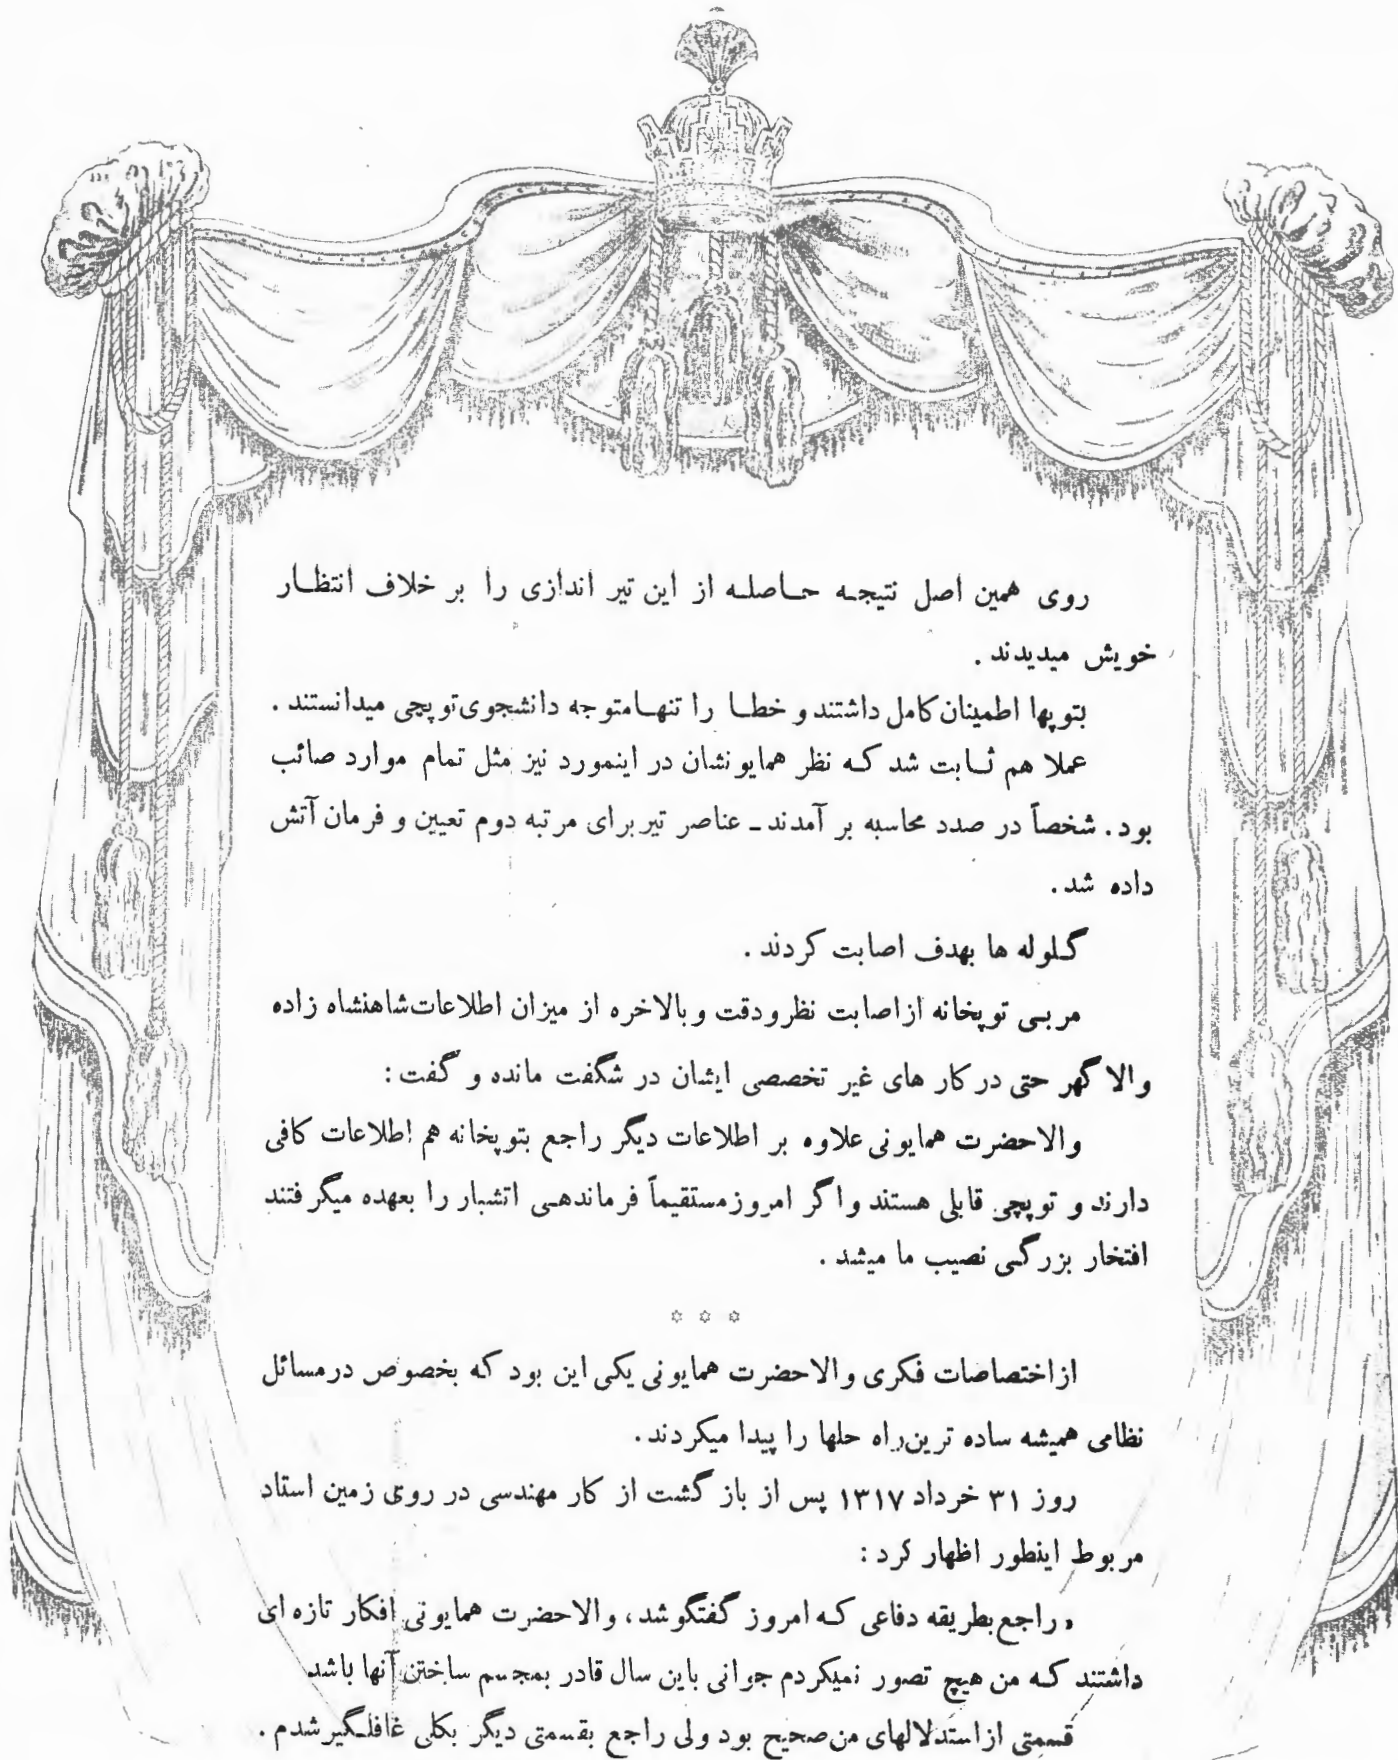 روی همین اصل نتیجه حاصله از این تیر اندازی را بر خلاف انتظار
خویش میدیدند .
بتوپها اطمینان کامل داشتند و خطا را تنها متوجه دانشجوی توپچی میدانستند .
عملا هم ثابت شد که نظر همایونشان در اینمورد نیز مثل تمام موارد صائب
بود . شخصاً در صدد محاسبه بر آمدند ـ عناصر تیر برای مرتبه دوم تعیین و فرمان آتش
داده شد .
گلوله ها بهدف اصابت کردند .
مربی توپخانه از اصابت نظر و دقت و بالاخره از میزان اطلاعات شاهنشاه زاده
والا گهر حتی در کار های غیر تخصصی ایشان در شگفت مانده و گفت :
والاحضرت همایونی علاوه بر اطلاعات دیگر راجع بتوپخانه هم اطلاعات کافی
دارند و توپچی قابلی هستند و اگر امروز مستقیماً فرماندهی اتشبار را بعهده میگرفتند
افتخار بزرگی نصیب ما میشد .
☆ ☆ ☆
از اختصاصات فکری والاحضرت همایونی یکی این بود که بخصوص در مسائل
نظامی همیشه ساده ترین راه حلها را پیدا میکردند .
روز ۳۱ خرداد ۱۳۱۷ پس از باز گشت از کار مهندسی در روی زمین استاد
مربوط اینطور اظهار کرد :
« راجع بطریقه دفاعی که امروز گفتگو شد ، والاحضرت همایونی افکار تازه ای
داشتند که من هیچ تصور نمیکردم جوانی باین سال قادر بمجسم ساختن آنها باشد
قسمتی از استدلالهای من صحیح بود ولی راجع بقسمتی دیگر بکلی غافلگیر شدم .